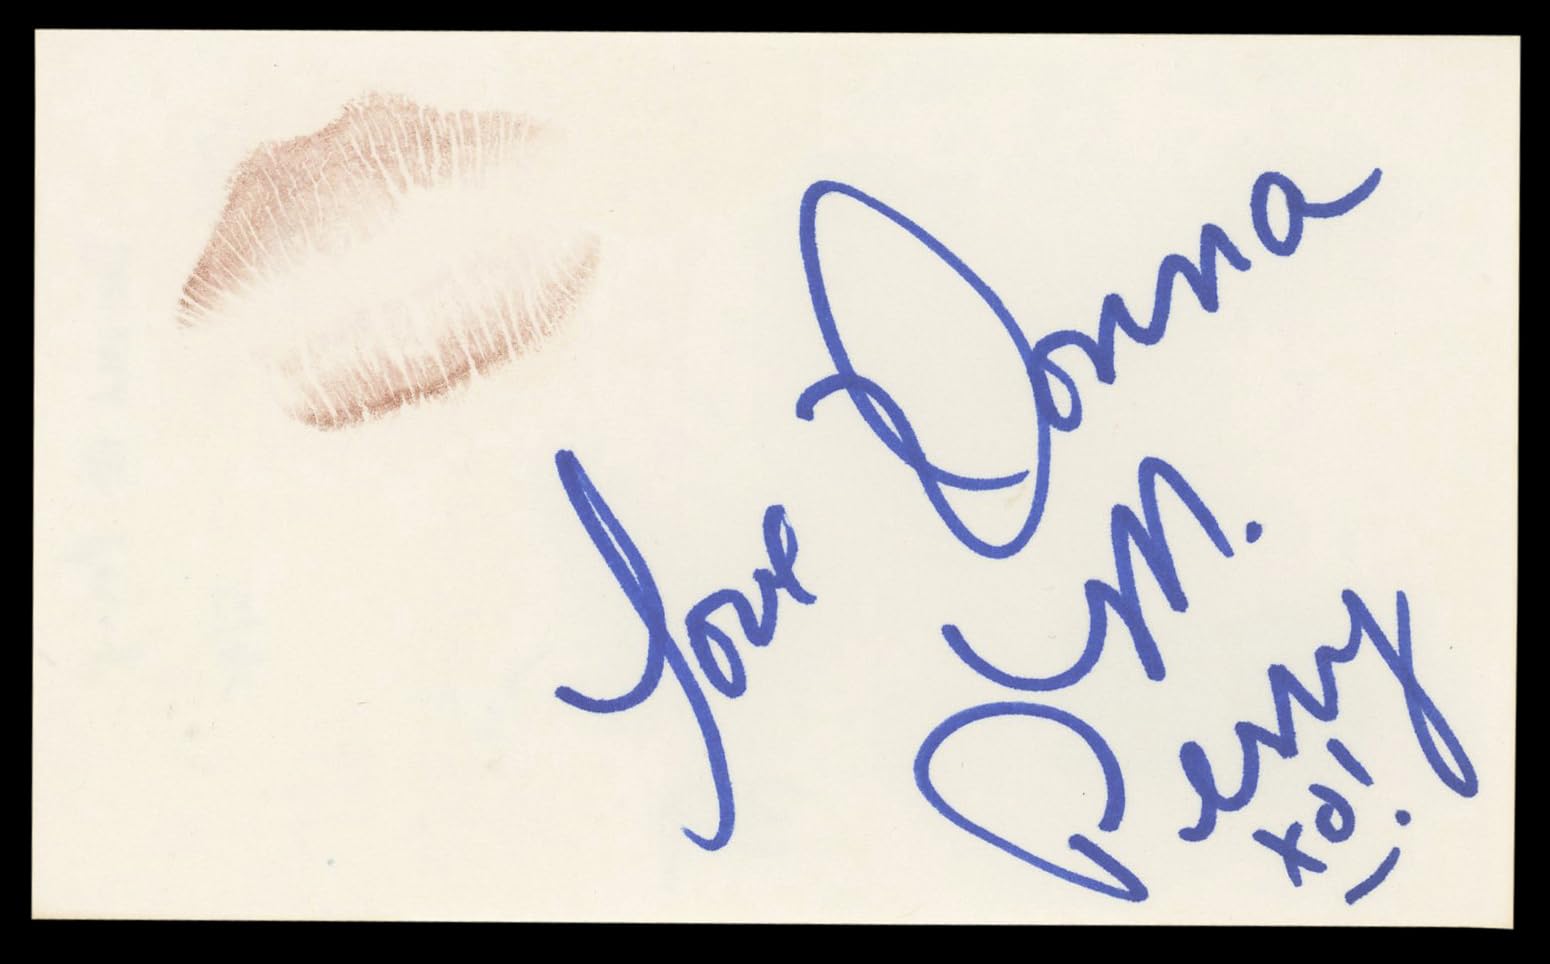 Love Donna
M.
Perry
xo!